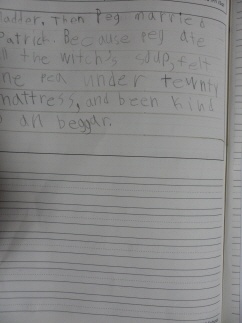 ladder, Then Peg married
Patrick. Because peg ate
the witch's soup, felt
pea under tewnty
mattress, and been kind
all beggar.